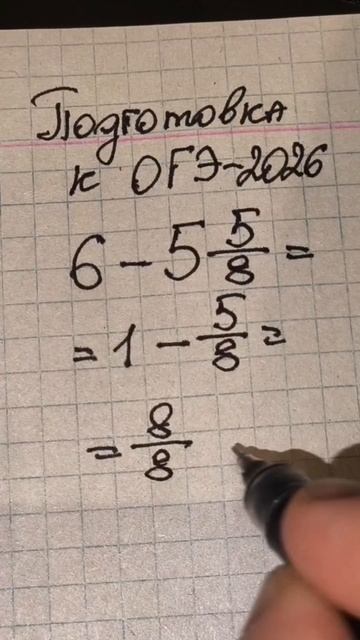 Подготовка
к ОГЭ-2026
6 - 5 5/8 =
= 1 - 5/8 =
= 8/8